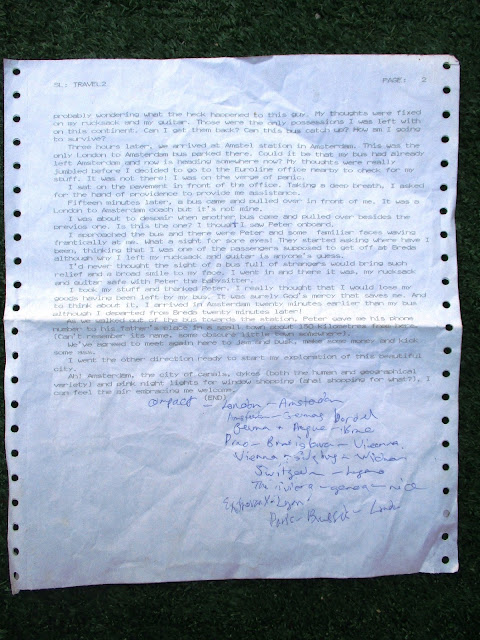 SL: TRAVEL2 PAGE: 2
probably wondering what the heck happened to this guy. My thoughts were fixed
on my rucksack and my guitar. Those were the only possessions I was left with
on this continent. Can I get them back? Can this bus catch up? How am I going
to survive?
Three hours later, we arrived at Amstel station in Amsterdam. This was the
only London to Amsterdam bus parked there. Could it be that my bus had already
left Amsterdam and now is heading somewhere now? My thoughts were really
jumbled before I decided to go to the Euroline office nearby to check for my
stuff. It was not there! I was on the verge of panic.
I sat on the pavement in front of the office. Taking a deep breath, I asked
for the hand of providence to provide me assistance.
Fifteen minutes later, a bus came and pulled over in front of me. It was a
London to Amsterdam coach but it's not mine.
I was about to despair when another bus came and pulled over besides the
previos one. Is this the one? I though I saw Peter onboard.
I approached the bus and there were Peter and some familiar faces waving
frentically at me. What a sight for pore eyes! They started asking where have I
been, thinking that I was one of the passengers supposed to get off at Breda
although why I left my rucksack and guitar is anyone's guess.
I'd never thought the sight of a bus full of strangers would bring such
relief and a broad smile to my face. I went in and there it was, my rucksack
and guitar safe with Peter the babysitter.
I took my stuff and thanked Peter. I really thought that I would lose my
goods having been left by my bus. It was surely God's mercy that saves me. And
to think about it, I arrived in Amsterdam twenty minutes earlier than my bus
although I departed from Breda twenty minutes later!
As we walked out of the bus towards the station, Peter gave me his phone
number to his father's place in a small town about 150 kilometres from here.
(Can't remember its name, some obscure little town somewhere).
We've agreed to meet again here to jam and busk, make some money and kick
some ass.
I went the other direction ready to start my exploration of this beautiful
city.
Ah! Amsterdam, the city of canals, dykes (both the human and geographical
variety) and pink night lights for window shopping (and shopping for what?), I
can feel the air embracing me welcome.
(END)
London - Amsterdam
- Prague -
- Bratislava - Vienna
Vienna -
- Lugano
The riviera - genoa - nice
Paris - Brussels -